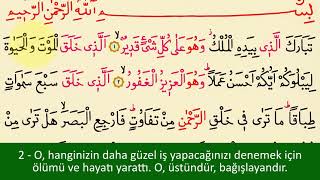 بِسْمِ اللَّهِ الرَّحْمَنِ الرَّحِيمِ
تَبَارَكَ الَّذِي بِيَدِهِ الْمُلْكُ وَهُوَ عَلَى كُلِّ شَيْءٍ قَدِيرٌ ﴿١﴾ الَّذِي خَلَقَ الْمَوْتَ وَالْحَيٰوةَ
لِيَبْلُوَكُمْ اَيُّكُمْ اَحْسَنُ عَمَلًا وَهُوَ الْعَزِيزُ الْغَفُورُ ﴿٢﴾ الَّذِي خَلَقَ سَبْعَ سَمٰوَاتٍ
طِبَاقًا مَا تَرٰى فِي خَلْقِ الرَّحْمٰنِ مِنْ تَفَاوُتٍ فَارْجِعِ الْبَصَرَ هَلْ تَرٰى
2 - O, hanginizin daha güzel iş yapacağınızı denemek için
ölümü ve hayatı yarattı. O, üstündür, bağışlayandır.